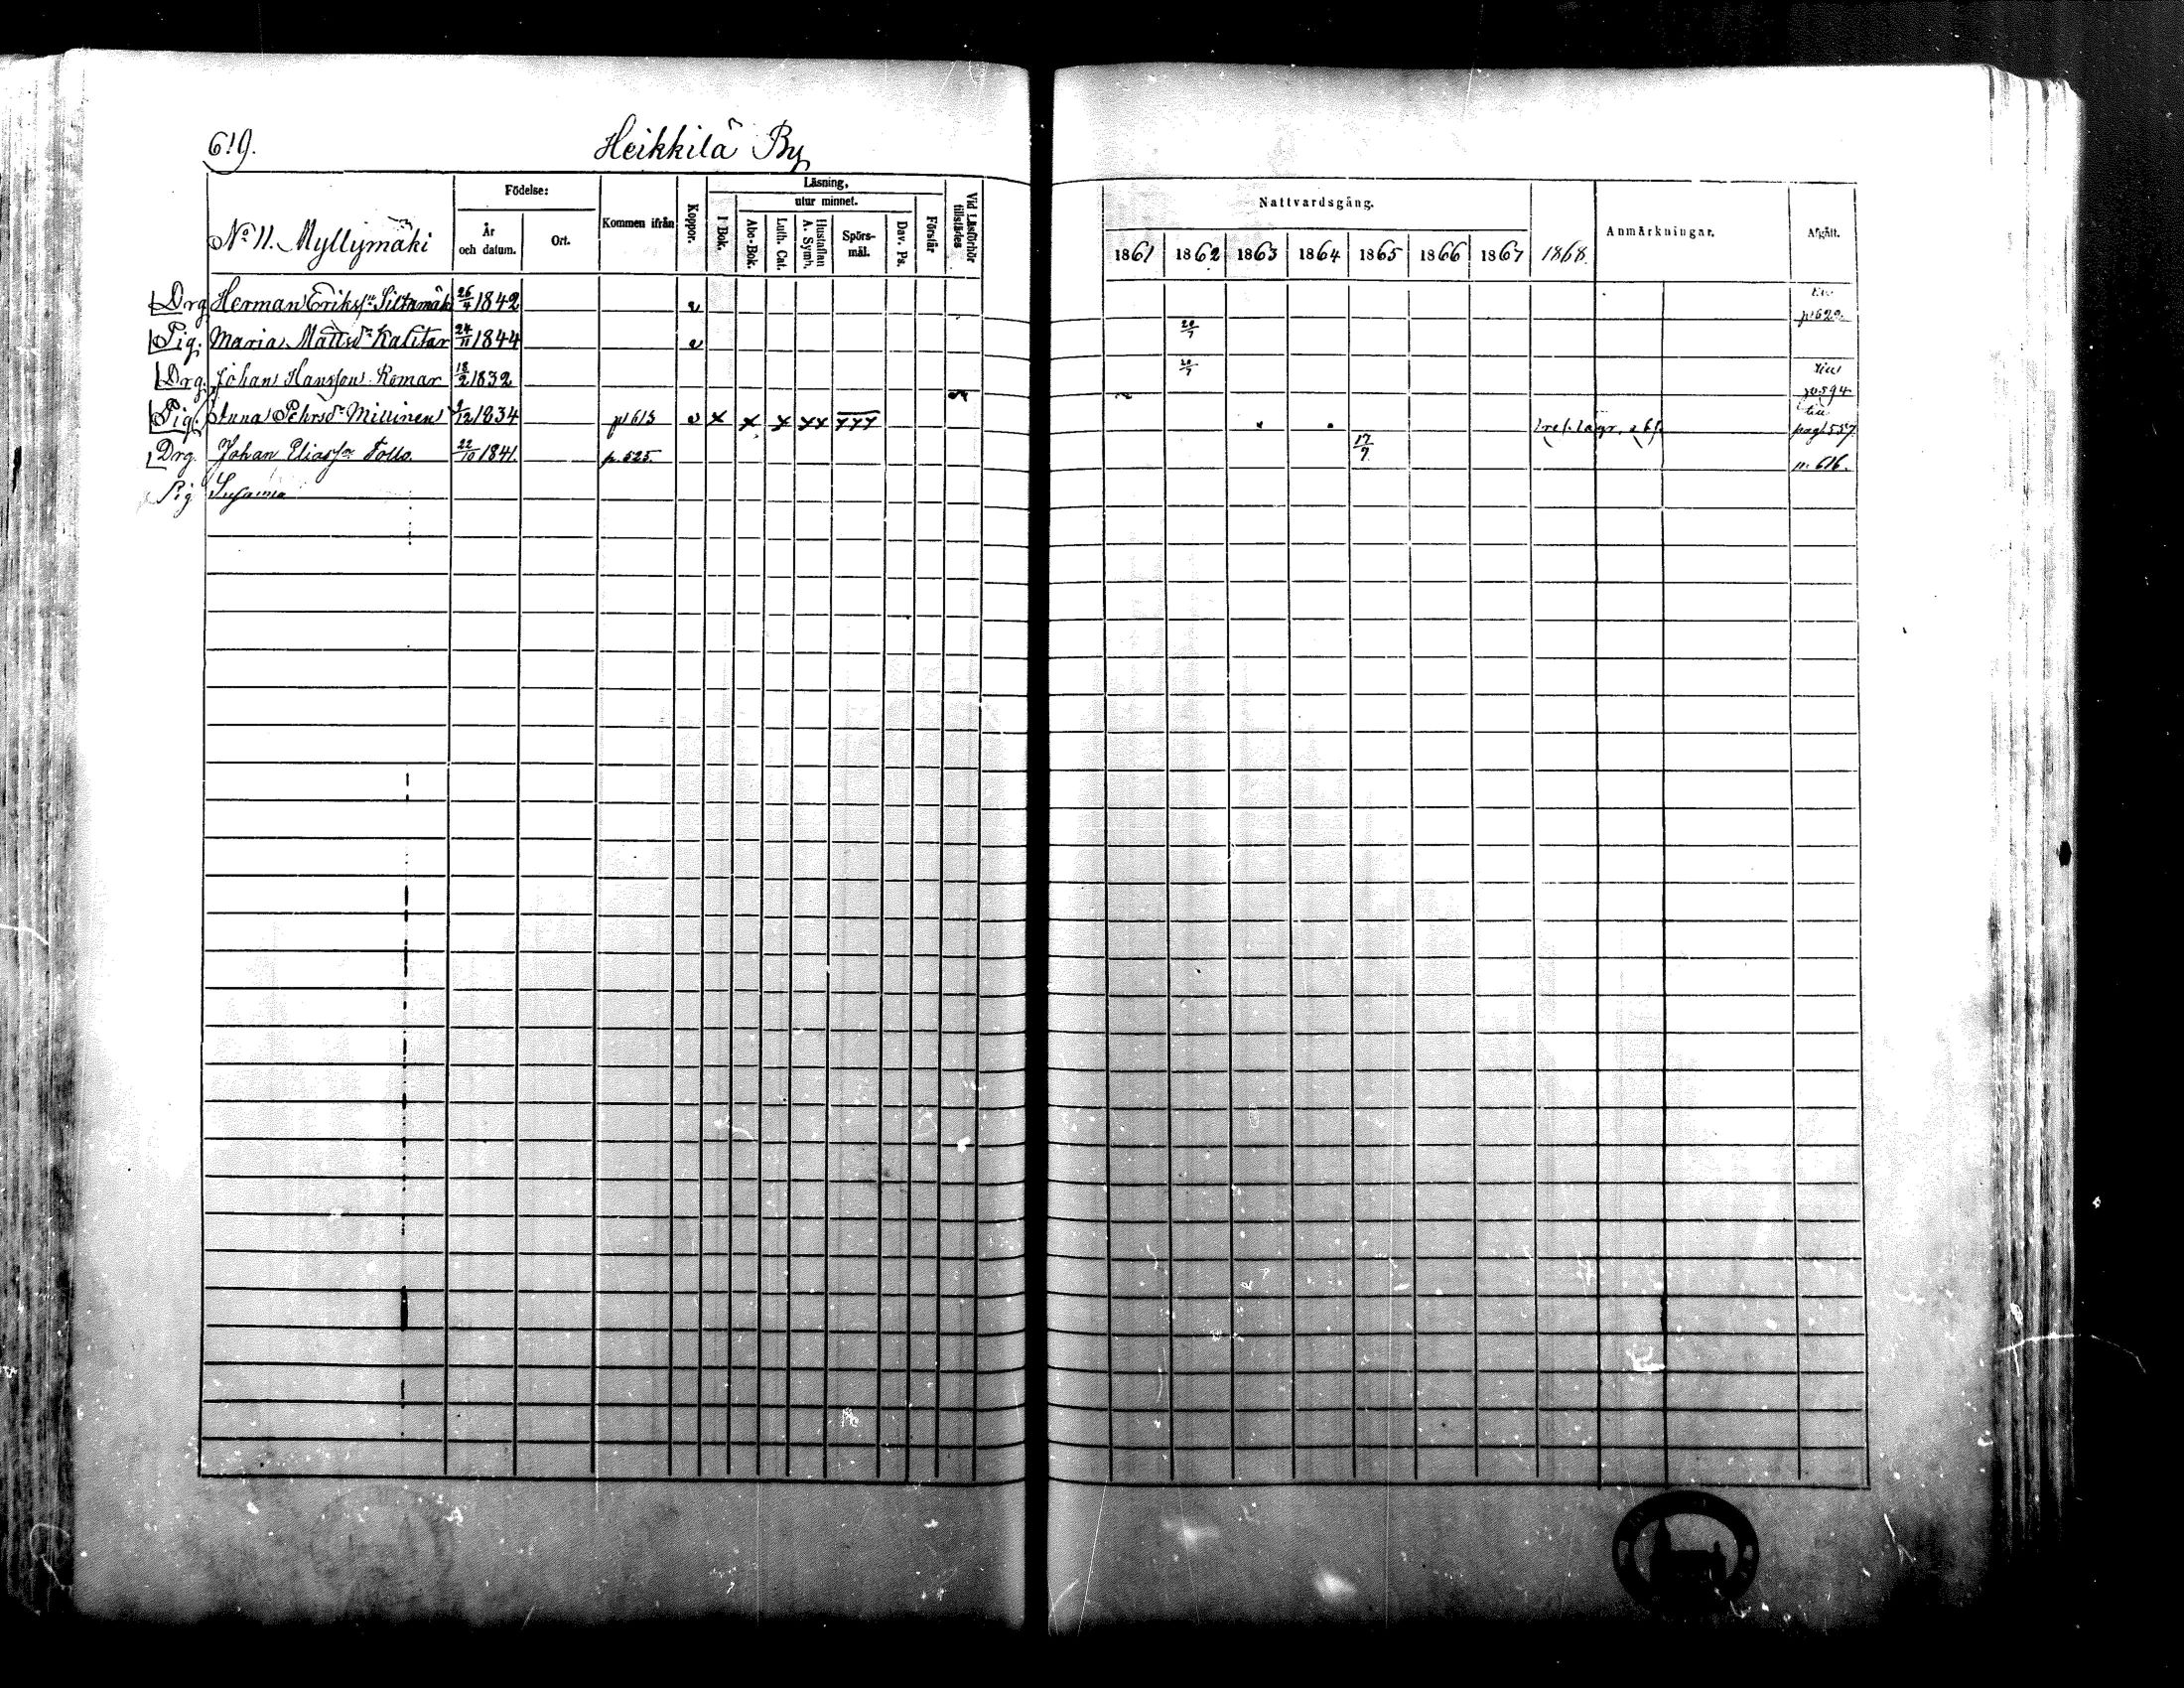 619.
Heikkilä By
No 11. Myllymäki
Födelse:
År och datum.
Ort.
Kommen ifrån
Koppor.
Läsning,
utur minnet.
I Bok.
Abc-Bok.
Luth. Cat.
Hustaflan A. Symb.
Spörs-mål.
Dav. Ps.
Förstår
Vid Läsförhör tillstädes
Nattvardsgång.
1861 1862 1863 1864 1865 1866 1867 1868
Anmärkningar.
Afgått.
Drg Herman Erikss. Siltamäki 26/4 1842 v p 620
Pig. Maria Mattsdr Kalitar 24/11 1844 v 20/7
Drg. Johan Hansson Komar 18/2 1832 20/7 till p 594
Pig. Anna Pehrsdr Millinen 9/12 1834 p 613 v x x x xx xxx till pag 557
Drg. Johan Eliasson Follo 22/10 1841. p. 525. 17/7 p. 616.
Pig Susanna